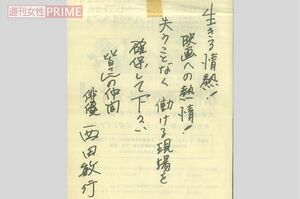 週刊女性PRIME
生きる情熱!
映画への情熱!
失うことなく 働ける現場を
確保して下さい
皆さんの仲間
俳優 西田敏行